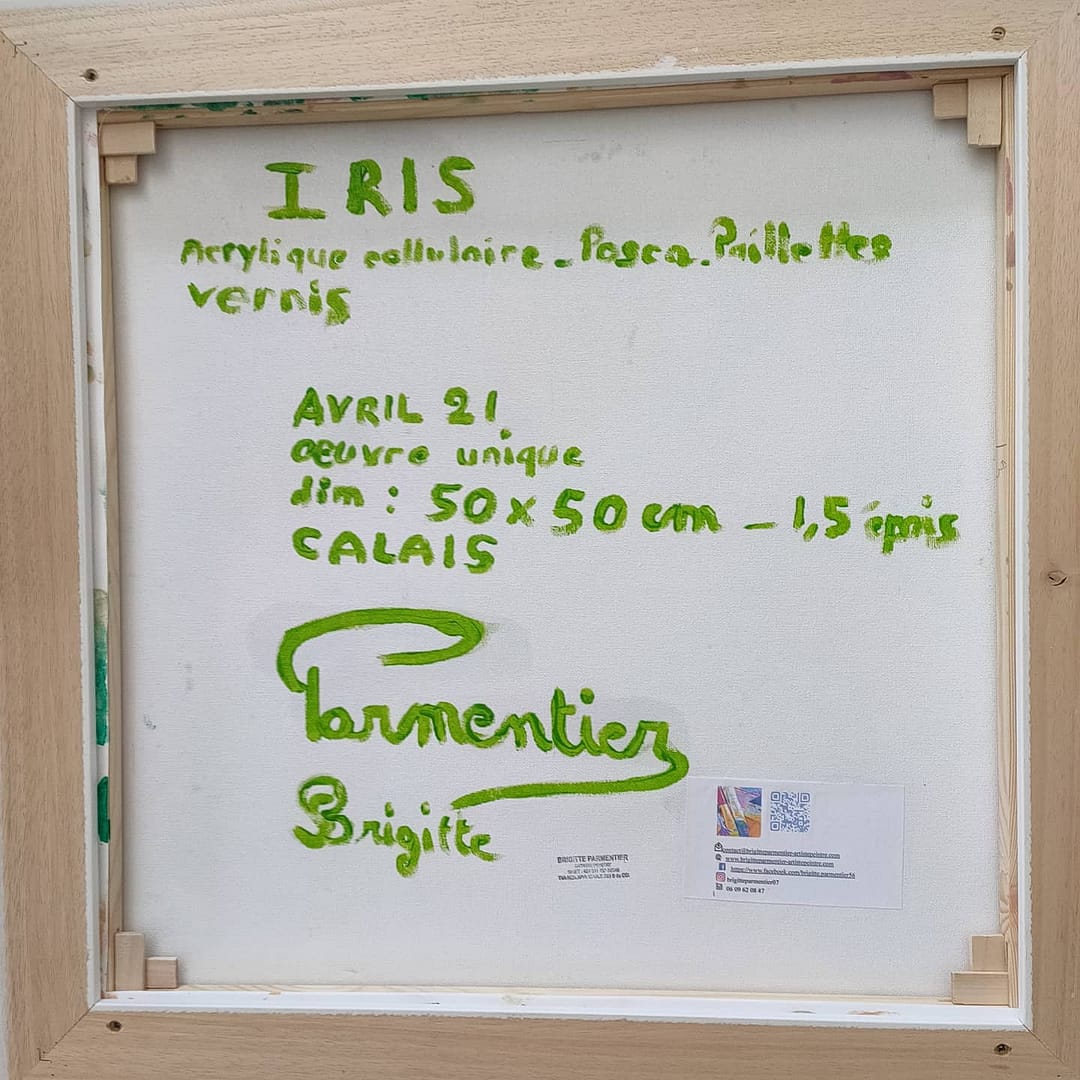 IRIS
Acrylique cellulaire - Posca. Paillettes
vernis
AVRIL 21
œuvre unique
dim : 50 x 50 cm - 1,5 épais
CALAIS
Parmentier
Brigitte
BRIGITTE PARMENTIER
contact@brigitteparmentier-artistepeintre.com
www.brigitteparmentier-artistepeintre.com
https://www.facebook.com/brigitte.parmentier56
brigitteparmentier07
06 09 62 08 47